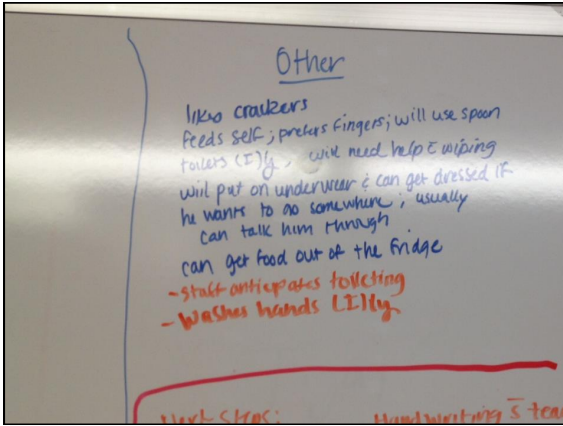 Other
likes crackers
feeds self; prefers fingers; will use spoon
toilets (I)ly, will need help c̄ wiping
will put on underwear & can get dressed if
he wants to go somewhere; usually
can talk him through
can get food out of the fridge
- staff anticipates toileting
- washes hands (I)lly
Next Steps:
Handwriting s̄ tea